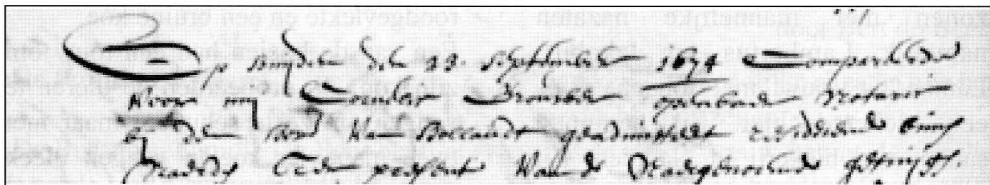 Op huyden den 23. September 1674 Compareerde
voor mij Cornelis openbaer Notaris
bij den hove van Hollandt geadmitteert residerende binnen
present van de naergenoemde getuijgen.